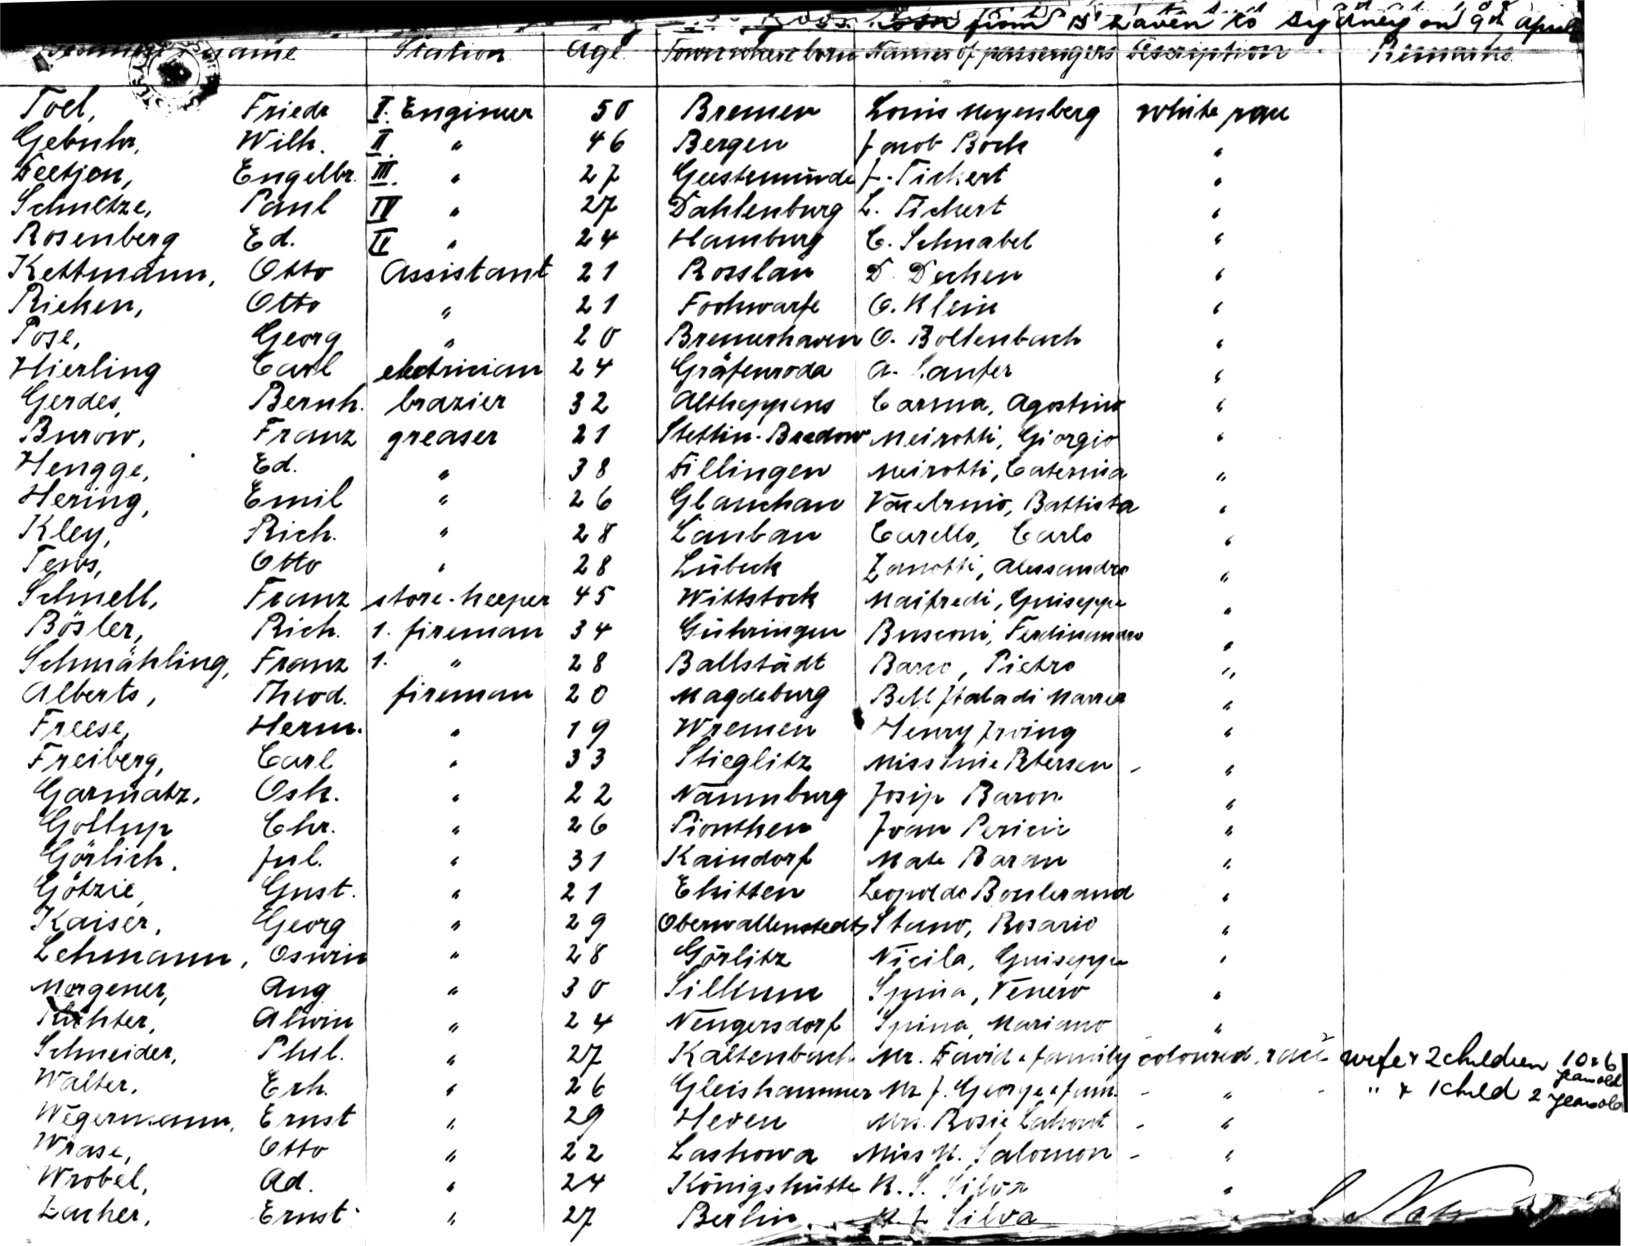 from B'haven to Sydney on 9th April
name Station Age Town where born Names of passengers Description Remarks
Toel, Friedr I. Engineer 50 Bremen Louis Meyenberg white race
Gebuhr, Wilh. II. " 46 Bergen Jacob Bock "
Teetjen, Engelbr. III. " 27 Geestemünde J. Tickert "
Schultze, Paul IV " 27 Dahlenburg L. Tickert "
Rosenberg Ed. II " 24 Hamburg C. Schnabel "
Kettmann, Otto Assistant 21 Rosslau D. Decken "
Ricken, Otto " 21 Fockwarfe O. Klein "
Pose, Georg " 20 Bremerhaven O. Boltenbach "
Hierling Carl electrician 24 Gräfenroda A. Laufer "
Gerdes, Bernh. brazier 32 Altheppens Carma, Agostino "
Burow, Franz greaser 21 Stettin-Bredow Meirotti, Giorgio "
Hengge, Ed. " 38 Fillingen Meirotti, Caterina "
Hering, Emil " 26 Glauchau Battista "
Kley, Rich. " 28 Lauban Carello, Carlo "
Tews, Otto " 28 Lübeck Zanotti, Alessandro "
Schnell, Franz store-keeper 45 Wittstock Maifredi, Guiseppe "
Bösler, Rich. 1. fireman 34 Gühringen Busconi, Ferdinando "
Schmähling, Franz 1. " 28 Ballstädt Barco, Pietro "
Alberts, Theod. fireman 20 Magdeburg "
Freese, Herm. " 19 Wremen Henry Irving "
Freiberg, Carl " 33 Stieglitz Miss Petersen - "
Garmatz, Osk. " 22 Naumburg Josip Baron "
Gollup Chr. " 26 Pionthen Ivan Pericic "
Görlich, Jul. " 31 Kaindorf Mate Baran "
Götzie, Gust. " 21 Ekitten Leopoldo Boulerand "
Kaiser, Georg " 29 Oberwallenstedt Stano, Rosario "
Lehmann, Oswin " 28 Görlitz Nicila, Guiseppe "
Morgener, Aug " 30 Silkum Spina, Venero "
Richter, Alwin " 24 Neugersdorf Spina, Mariano "
Schneider, Phil. " 27 Kaltenbach Mr. David & family coloured race wife & 2 children 10 & 6 years old
Walter, Erh. " 26 Gleishammer Mr J. George & fam. - " - " & 1 child 2 years old
Wegermann, Ernst " 29 Heven Mrs. Rosie Lahout - "
Wrase, Otto " 22 Laskowa Miss M. Salomon - "
Wrobel, Ad. " 24 Königshütte K. S. Silva "
Zacher, Ernst " 27 Berlin Silva